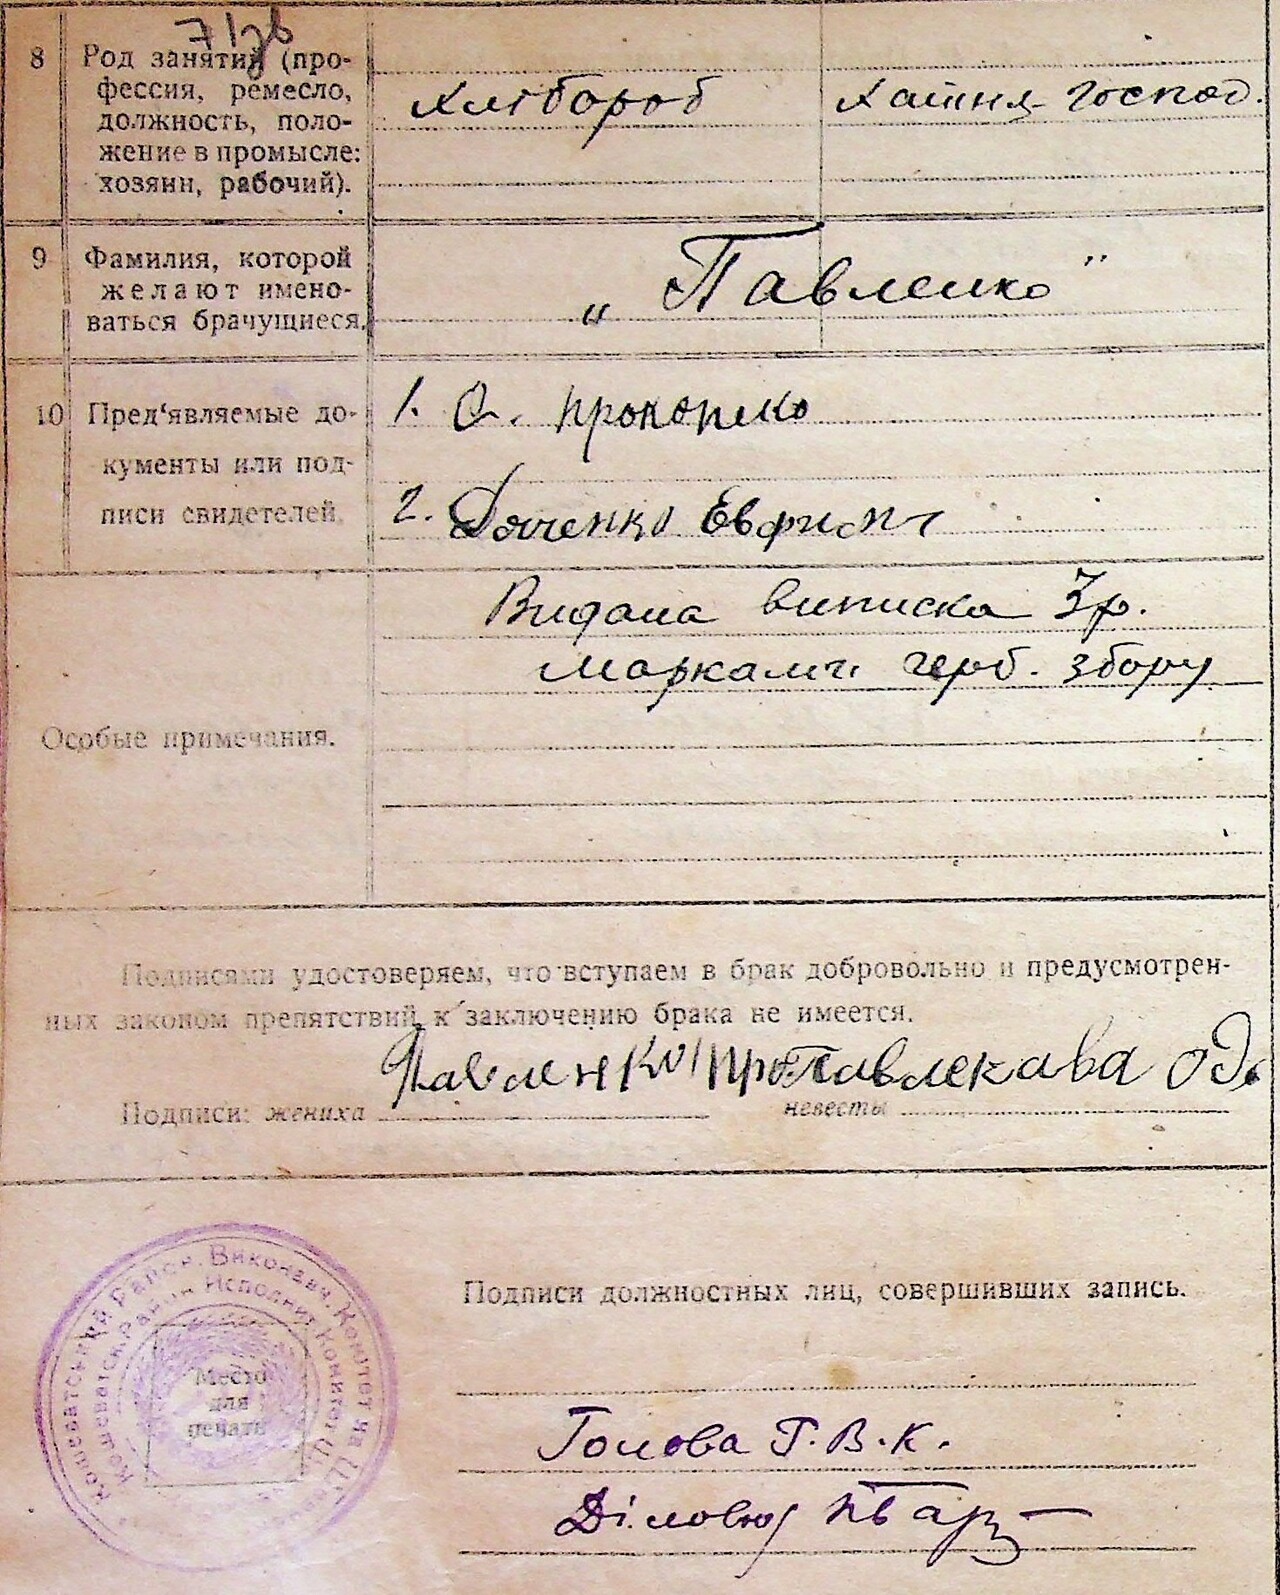 8 Род занятий (про-
фессия, ремесло,
должность, поло-
жение в промысле:
хозяин, рабочий).
Хлібороб Хатня господ.
9 Фамилия, которой
желают имено-
ваться брачущиеся.
„Павленко"
10 Пред'являемые до-
кументы или под-
писи свидетелей.
1.
2. Дяченко Евфим
Особые примечания.
Видана виписка 3р.
марками герб. збору
Подписями удостоверяем, что вступаем в брак добровольно и предусмотрен-
ных законом препятствий к заключению брака не имеется.
Павленко
Подписи: жениха невесты
Кошеватський Район. Виконавч. Комітет на
Кошеватск. Район Исполнит. Комитет
Место
для
печати
Подписи должностных лиц, совершивших запись.
Голова Р.В.К.
Діловод